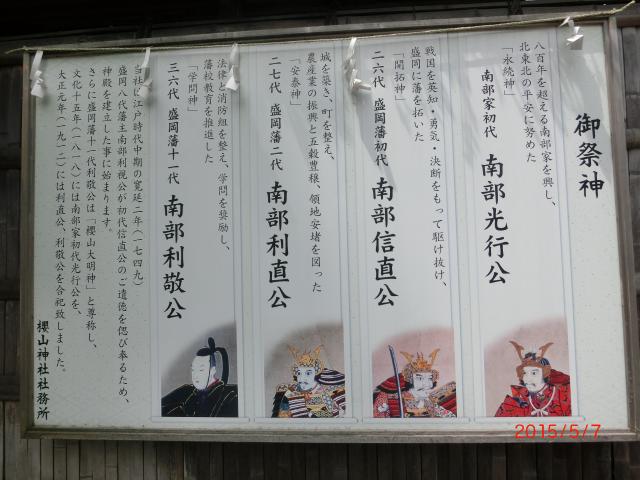 御祭神
八百年を超える南部家を興し、
北東北の平安に努めた
「永続神」
南部家初代 南部光行公
戦国を英知・勇気・決断をもって駆け抜け、
盛岡に藩を拓いた
「開拓神」
二六代 盛岡藩初代 南部信直公
城を築き、町を整え、
農産業の振興と五穀豊穣、領地安堵を図った
「安泰神」
二七代 盛岡藩二代 南部利直公
法律と消防組を整え、学問を奨励し、
藩校教育を推進した
「学問神」
三六代 盛岡藩十一代 南部利敬公
当社は江戸時代中期の寛延二年(一七四九)
盛岡八代藩主南部利視公が初代信直公のご遺徳を偲び奉るため、
神殿を建立した事に始まります。
さらに盛岡藩十一代利敬公は「櫻山大明神」と尊称し、
文化十五年(一八一八)には南部家初代光行公を、
大正元年(一九一二)には利直公、利敬公を合祀致しました。
櫻山神社社務所
2015/5/7